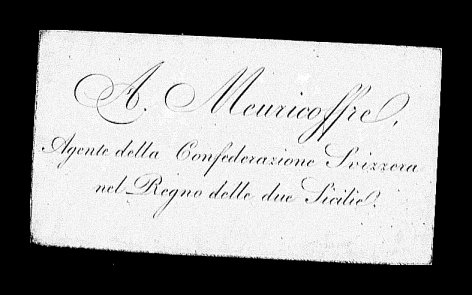 A. Meuricoffre,
Agente della Confederazione Svizzera
nel Regno delle due Sicilie.